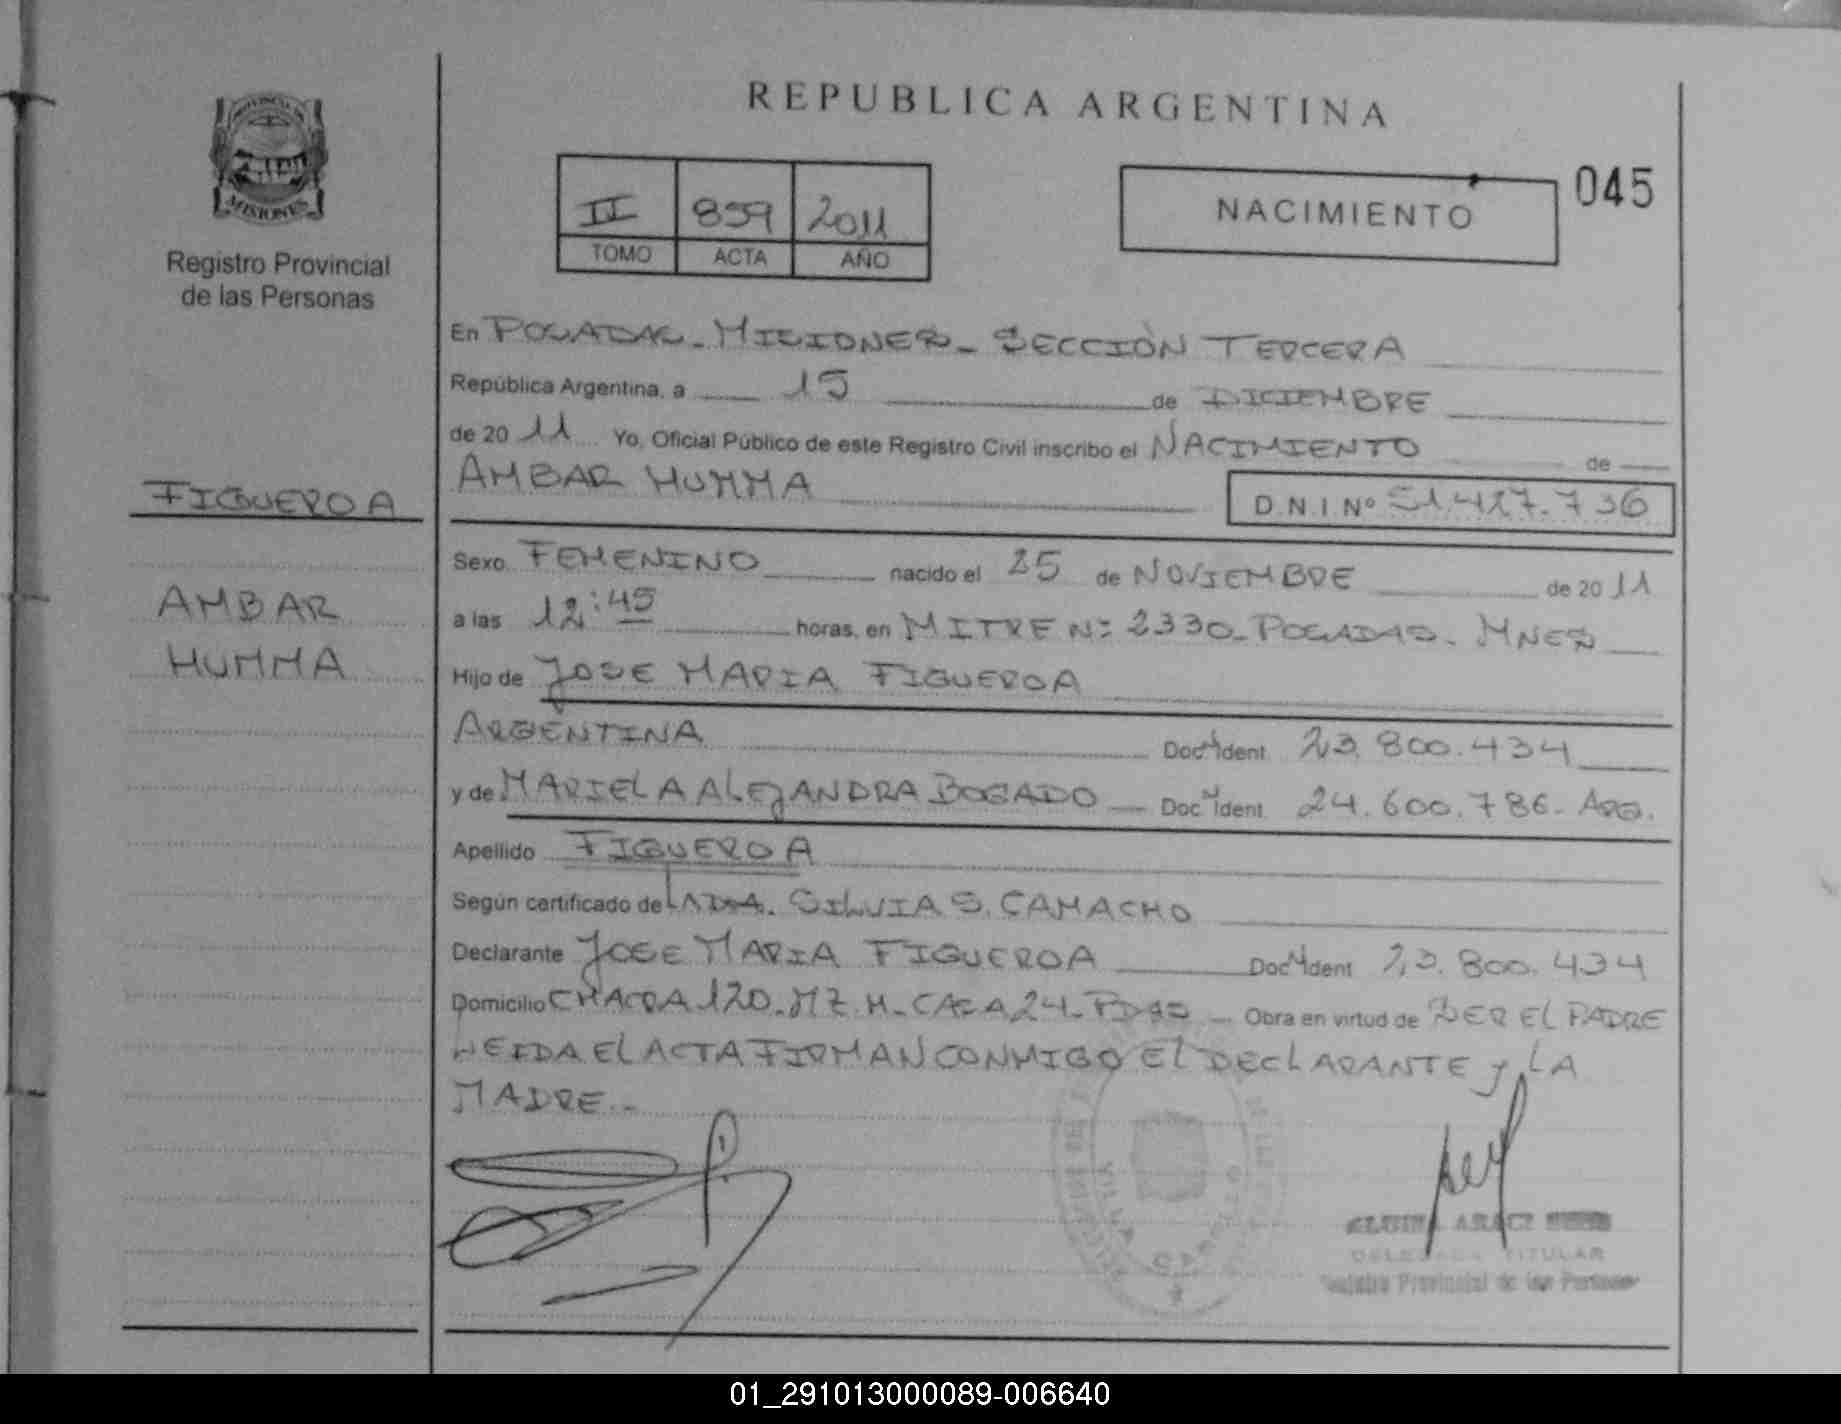 REPUBLICA ARGENTINA
PROVINCIA DE
MISIONES
Registro Provincial
de las Personas
II 859 2011
TOMO ACTA AÑO
NACIMIENTO
045
En POSADAS - MISIONES - SECCIÓN TERCERA
República Argentina, a 15 de DICIEMBRE
de 20 11 Yo, Oficial Público de este Registro Civil inscribo el NACIMIENTO de
AMBAR HUMMA
D.N.I Nº 51.427.736
FIGUEROA
AMBAR
HUMMA
Sexo FEMENINO nacido el 25 de NOVIEMBRE de 20 11
a las 12:45 horas, en MITRE Nº 2330 - POSADAS - MNES
Hijo de JOSE MARIA FIGUEROA
ARGENTINA Doc. Ident. 23.800.434
y de MARIELA ALEJANDRA BOGADO Doc. Ident. 24.600.786 - ARG.
Apellido FIGUEROA
Según certificado de SILVIA S. CAMACHO
Declarante JOSE MARIA FIGUEROA Doc. Ident. 23.800.434
Domicilio CHACRA 120 - MZ. H - CASA 24 - PDAS - Obra en virtud de SER EL PADRE
LEIDA EL ACTA FIRMAN CONMIGO EL DECLARANTE y LA
MADRE.-
VILLA
ARACI
DELEGADA TITULAR
Registro Provincial de las Personas
01_291013000089-006640